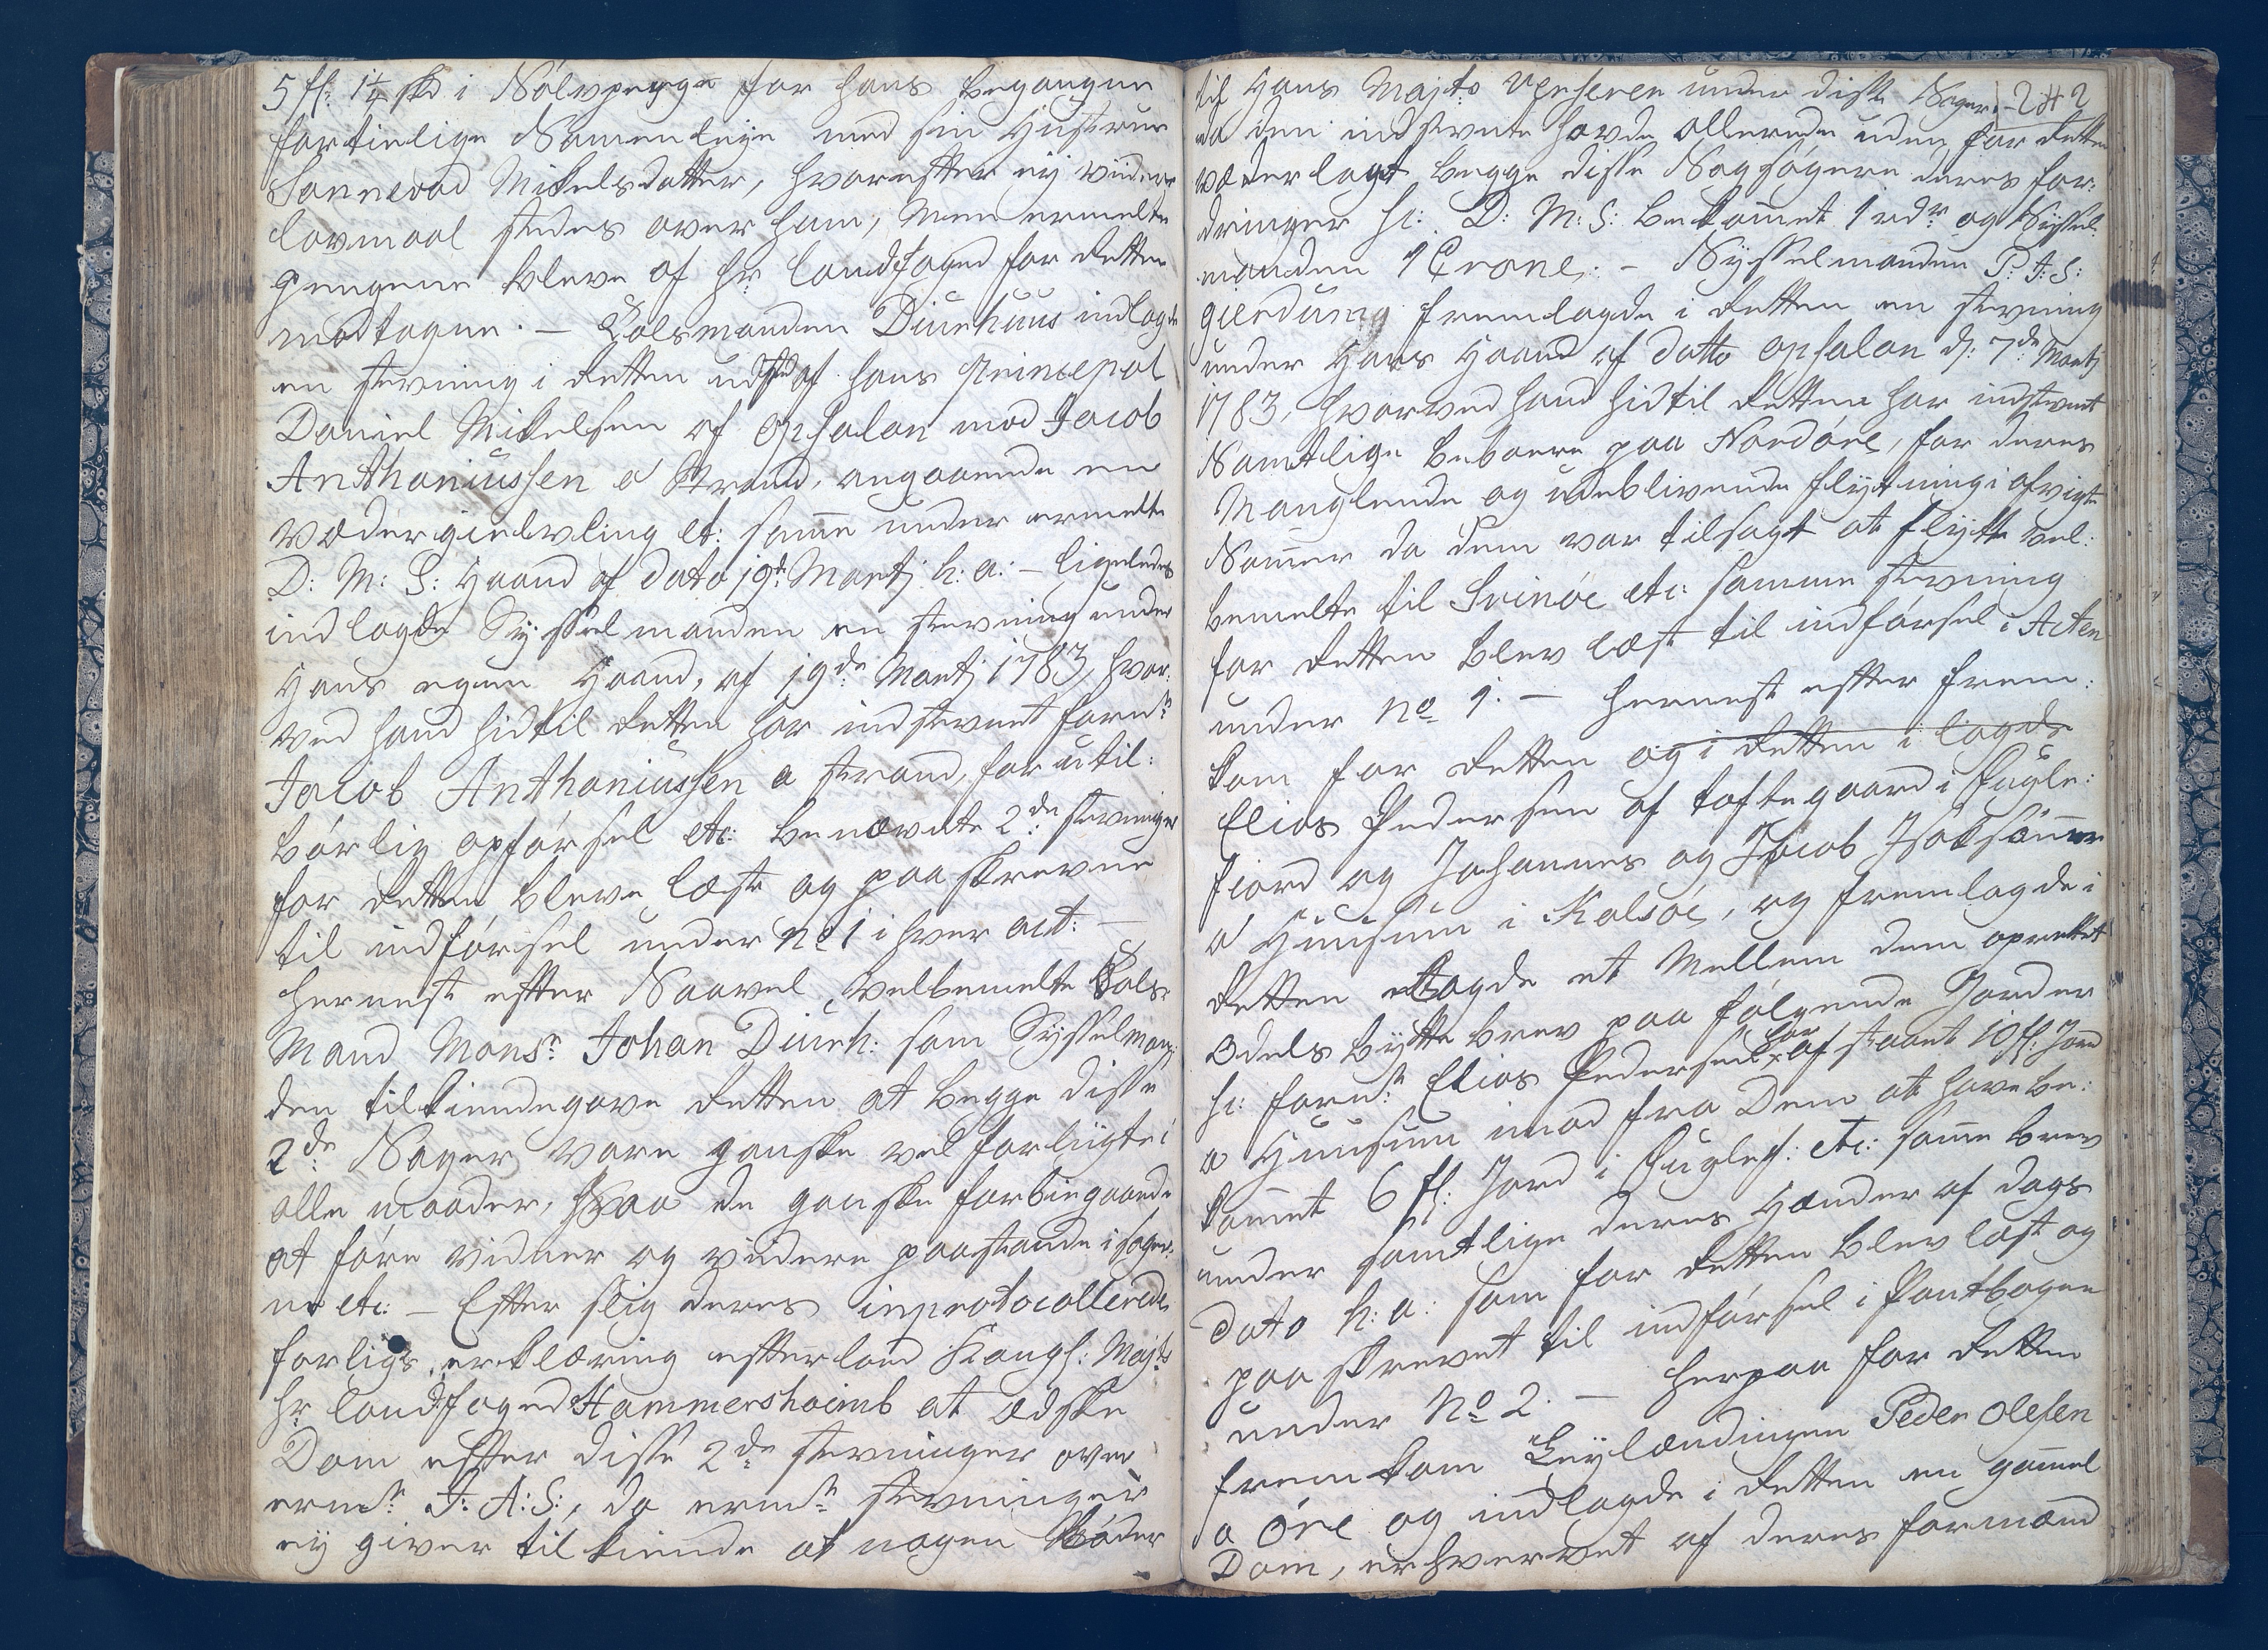 5 fl: 1¼ skd i Sólvpenge for hans begangne
fortielige Samenleye med sin Hustrue
Sonnevad Mikelsdatter, hvorefter ey viidere
lovmaal stedes over ham, men ermelte
Pengene bleve af hr. landfoged for Retten
modtagne. – Tolsmanden Diurhuus indlagde
en stevning i Retten udstæd af hans Principal
Daniel Mikelsen af Opsalon mod Jacob
Anthoniussen a Strand, angaaende en
væder gielvling etc: samme under ermelte
D: M: S: Haand af dato 19de Martj h: a: – ligeledes
indlagde Sysselmanden en stevning under
Hans egen Haand, af 19de Martj 1783, hvor:
ved hand hidtil Retten har indstevnt forne
Jacob Anthoniussen a Strand, for util:
børlig opførsel etc: benævnte 2de stevninger
for Retten bleve læste og paaskrevne
til indførsel under No 1 i hver act: –
hernest efter Saavel velbemelte Tols-
Mand Monsr Johan Diurh: som Sysselman-
den tilkiendegave Retten at begge disse
2de Sager vare ganske vel forligte i
alle maader, saa de ganske forbiegaaede
at føre vidner og videre paastande i sager-
ne etc: – Efter slig deres inprotocollerede
forligs erklæring efterlod Kongl: Majts
hr landfoged Hammershaimb at ædske
Dom efter disse 2de stevninger over
ermte J: A: S:, da ermte stevninger
ey giver tilkiende at nogen Bøder
til Hans Majts Upeherer under disse Sager – 242
da den indstevnte havde allerede uden for Retten
væderlagt begge disse Sagsøgere deres for:
dringer hl: D: M: S: bekommet 1 rdr og Syssel-
manden 1 Crone: – Sysselmanden P: J: S:
Giendung fremlagde i Retten en stevning
under Hans Haand af Datto Opsalon d: 7de Martj
1783, hvorved hand hidtil Retten har indstevnt
Samtlige beboere paa Nordøre, for deres
Manglende og udeblivende flytning i afvigte
Sommer da dem var tilsagt at flytte vel:
bemelte til Svinøe etc: samme stevning
for Retten blev læst til indførsel i Acten
under No 1. – hernest efter frem:
kom for Retten og i Retten i lagde
Elias Pedersen af toftegaard i Fugle:
fiord og Johannes og Jacob Isaksønner
a Huusum i Kalsøe, og fremlagde i
Retten lagde et Mellem dem oprettet
Odels bytte brev paa følgende Jorder
hl: forne Elias Pedersen har afstaaet 10 fl: Jord
a Huusum imod fra Dem at have be:
kommet 6 fl: Jord i Fuglef: etc: samme brev
under samtlige deres Hænder af Dags
Dato h: a: som for Retten blev læst og
paaskrevet til indførsel i Pantbogen
under No 2. – herpaa for Retten
fremkom Leylændingen Peder Olesen
a Øre og indlagde i Retten en gammel
Dom, erhvervet af deres formænd